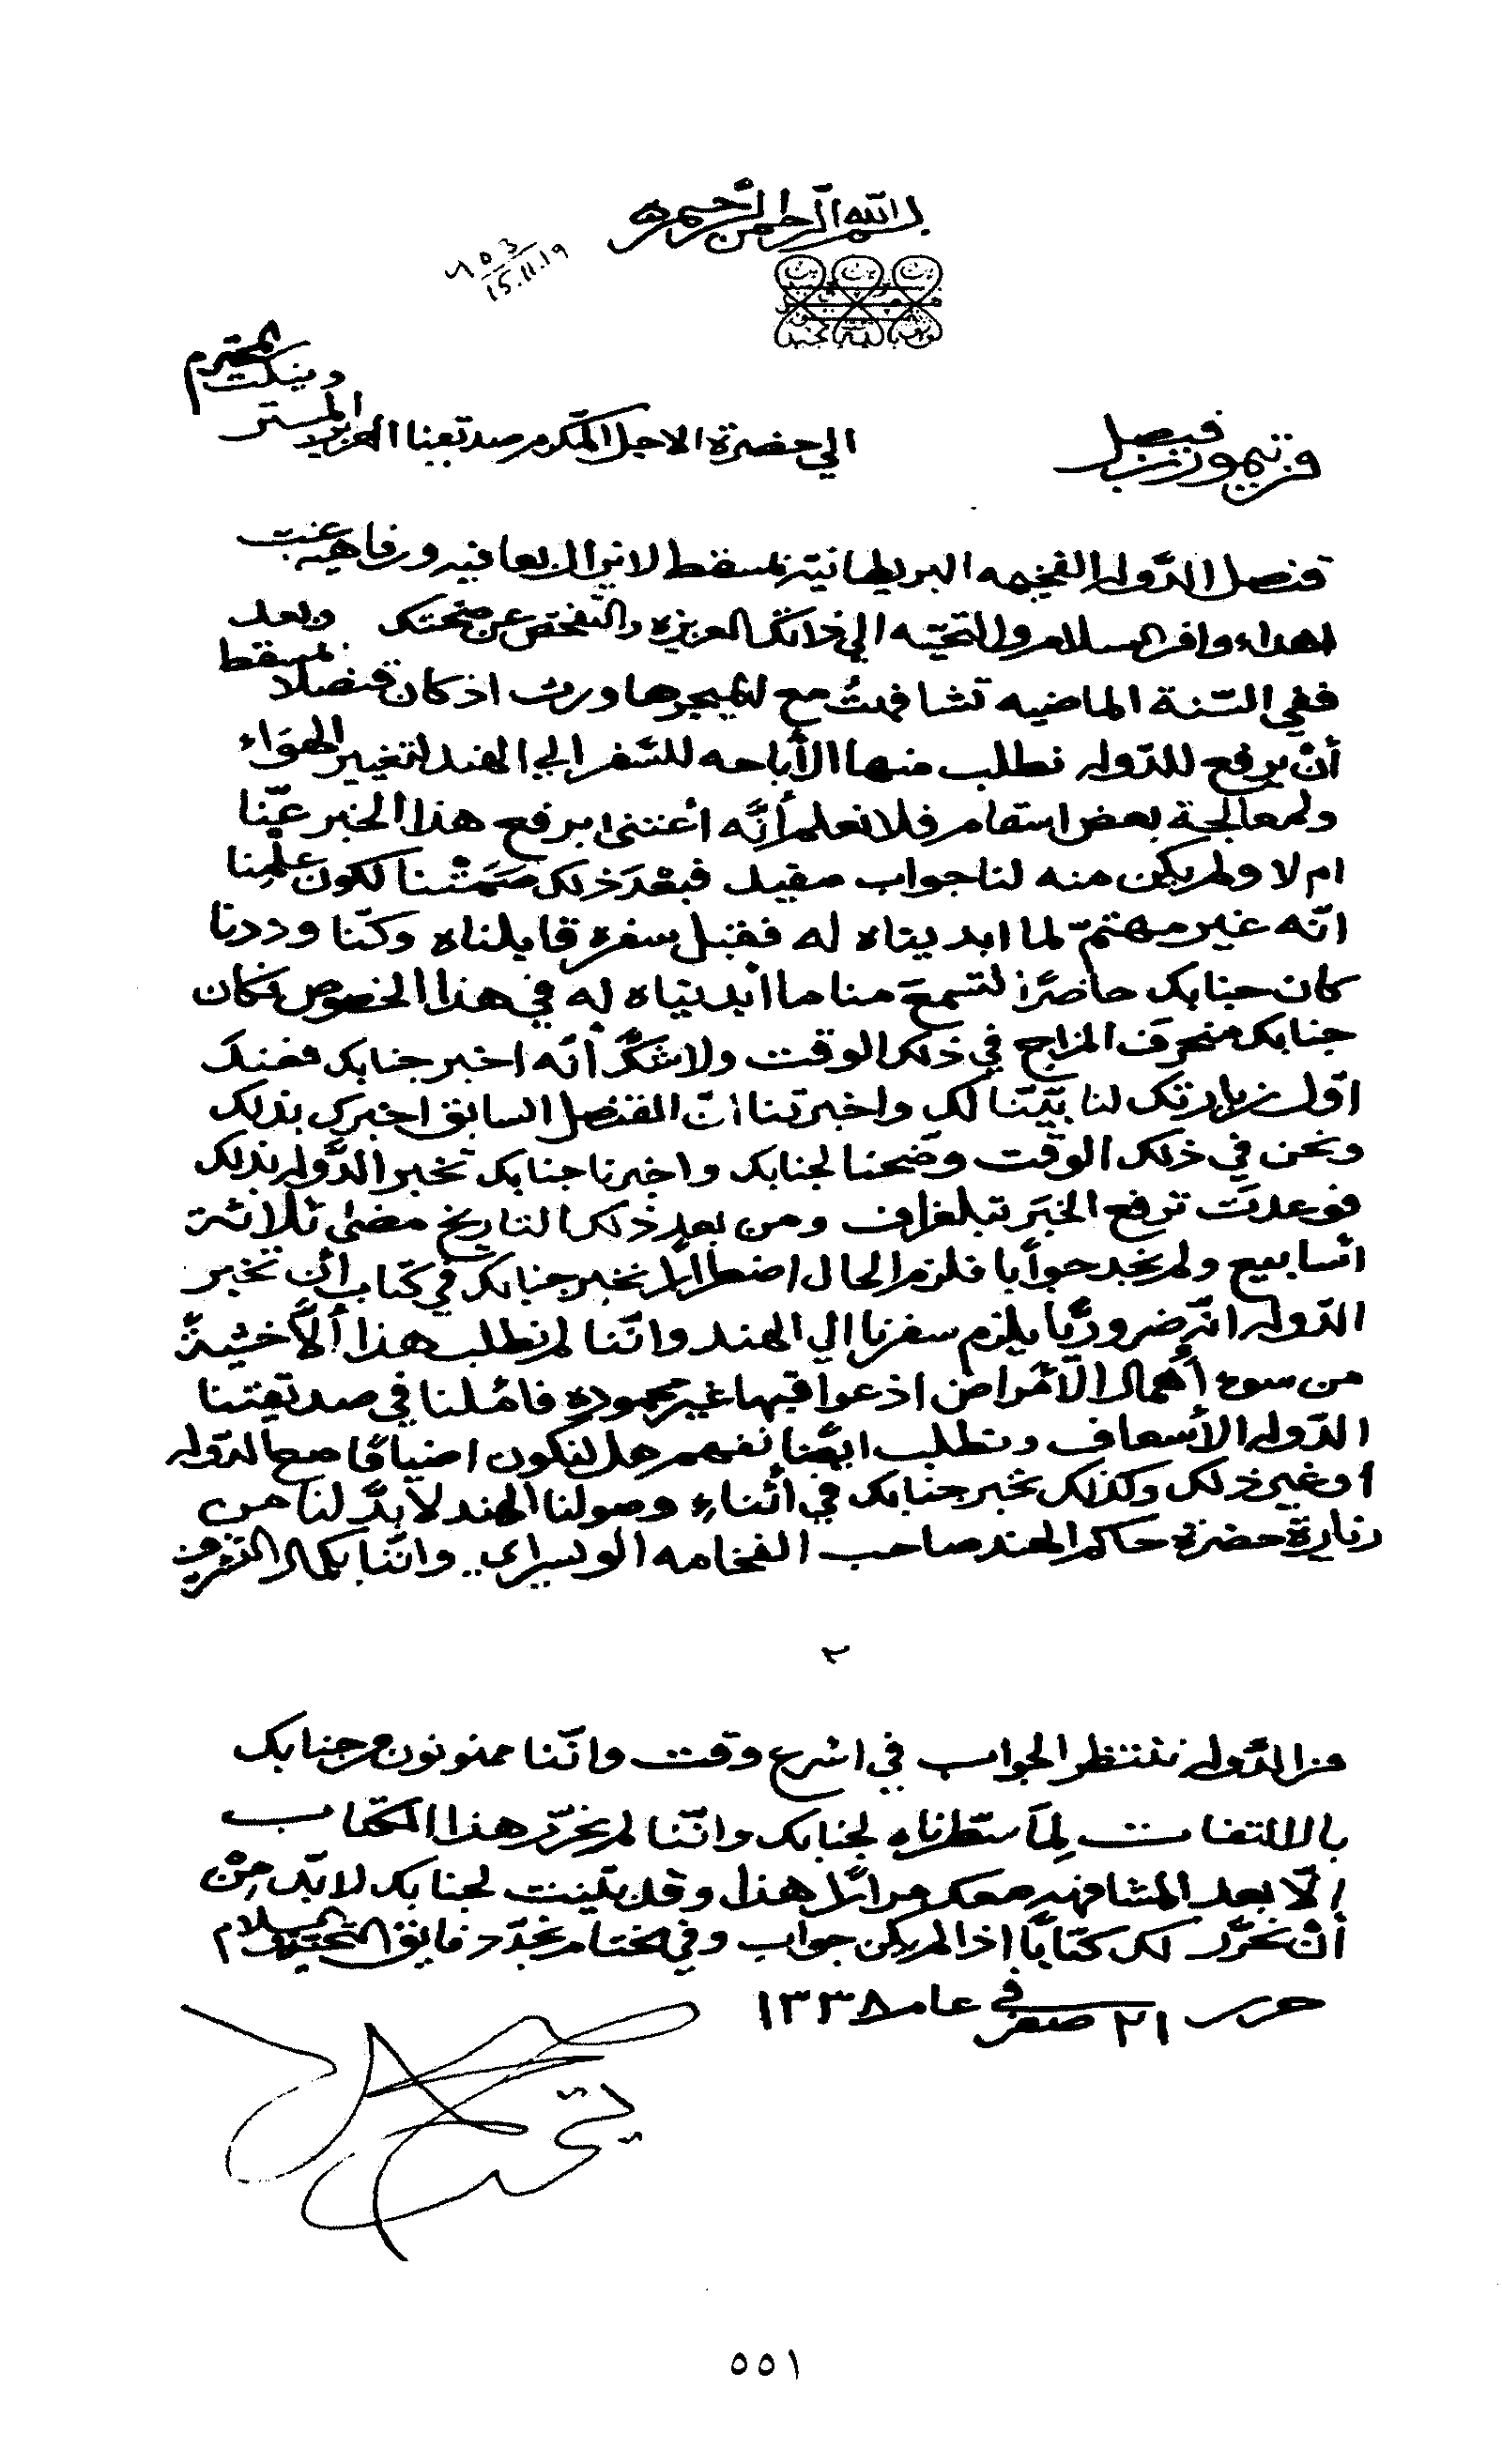 بسم الله الرحمن الرحيم
١٥.١١.١٩
من تيمور بن فيصل
الى حضرة الاجل المكرم صديقنا العزيز المستر
المحترم
قنصل الدوله الفخيمه البريطانية بمسقط لا يزال بعافيه ورفاهيه غب
اهداء وافر السلام والتحيّه الى ذاتك العزيزه والتفحّص عن صحّتك وبعد
ففي السّنة الماضيه تشافهتُ مع الميجر هاورث اذ كان قنصلا بمسقط
أنْ يرفع للدّوله نطلب منها الأباحه للسّفر الى الهند لتغيير الهوَاء
ولمعالجة بعض اسقام فلا نعلم أنَّه أعتنى برفع هذا الخبر عنّا
ام لا ولم يكن منه لنا جواب مفيد فبعْدَ ذلك صَمَتْنا لكون عِلْمِنا
انّه غير مهتمّ لما ابديناه له فقبل سفره قابلناه وكنّا وددنا
كان جنابك حاضرًا لتسمعَ منا ما أبديناه له في هذا الخصوص فكان
جنابك منحرَف المزاج في ذلك الوقت ولا شكَّ أنّه اخبر جنابك فعند
اوّل زيارتك لنا بيّنّا لك واخبرتنا انّ القنصل السابق اخبرك بذلك
ونحن في ذلك الوقت وضّحنا لجنابك واخبرنا جنابك تخبر الدّوله بذلك
فوعدتَ ترفع الخبَر تبلغراف ومن بعد ذلك التاريخ مضىٰ ثلاثة
اسابيع ولم نجد جوابا فلزم الحال اضطرارا نخبر جنابك في كتاب أن تخبر
الدّوله انّه ضروريًّا يلزم سفرنا الى الهند وانّنا لم نطلب هذا ألاّ خشيةً
من سوء أهمال الأمراض اذ عواقبها غير محموده فاملنا في صديقتنا
الدّوله الأسعاف ونطلب ايضًا نفهم هل لنكون اضيافًا مع الدّوله
او غير ذلك وكذلك نخبر جنابك في أثناء وصولنا الهند لا بدّ لنا من
زيارة حضرة حاكم الهند صاحب الفخامه الويسراي وانّنا بكمال التشرف
٢
من الدّوله ننتظر الجواب في اسرع وقت وانّنا ممنونون من جنابك
بالالتفات لِمَا سَطّرناه لجنابك وانّنا لم نحرّر هذا الكتاب
الّا بعد المشافهه معك مرارًا هذا وقد بيّنت لجنابك لا بّد مِنْ
أنْ نحرّر لك كتابًا اذا لم يكن جواب وفي الختام نجدّد فايق التحيه والسلام
حرر ٢١ صفر في عام ١٣٣٨
٥٥١